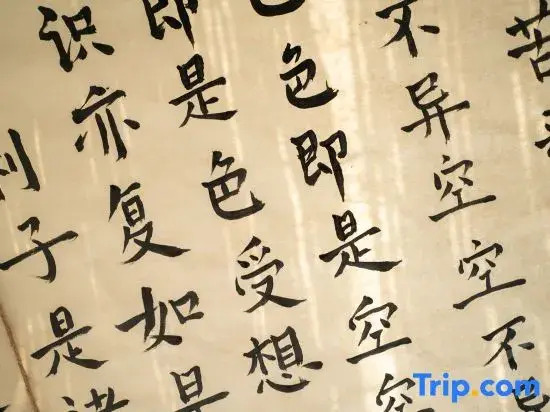 苦
不异空空不
色色即是空空
即是色受想
识亦复如是
利子是诸
Trip.com